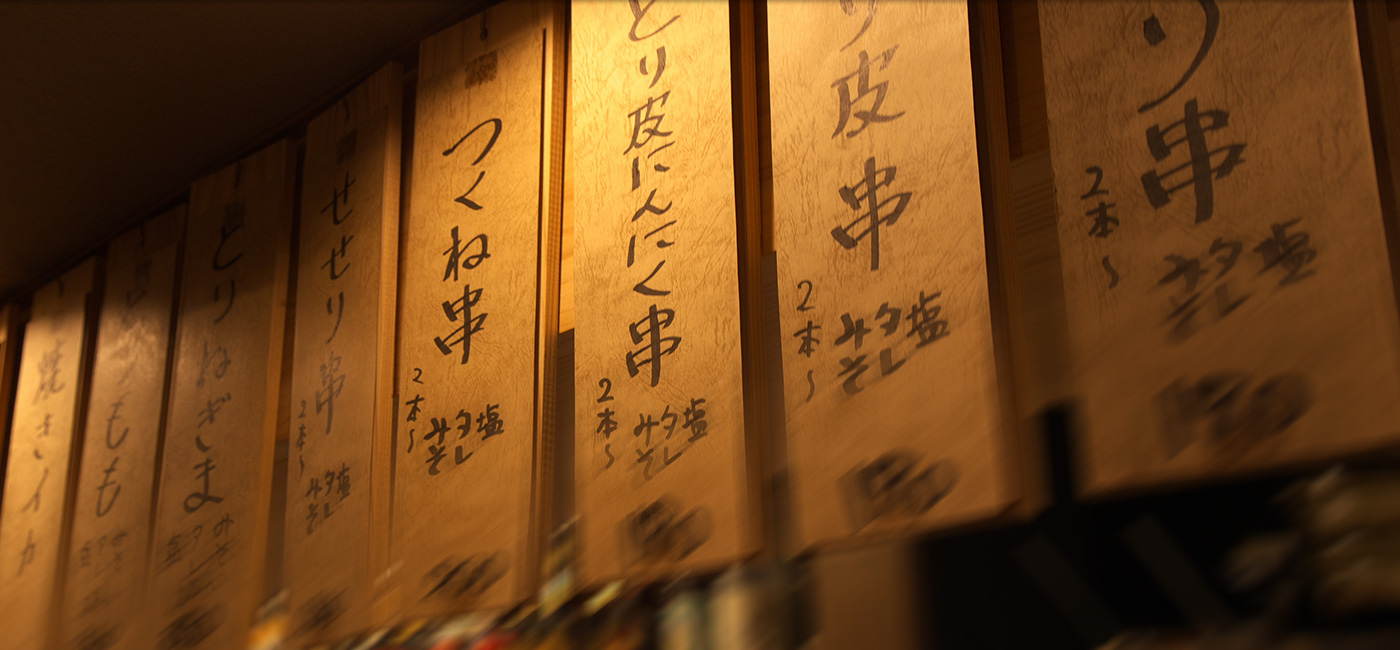 り串
2本〜
塩
タレ
みそ
り皮串
2本〜
塩
タレ
みそ
とり皮にんにく串
2本〜
塩
タレ
みそ
つくね串
2本〜
塩
タレ
みそ
せせり串
2本〜
塩
タレ
みそ
とりねぎま
みそ
タレ
塩
もも
焼きイカ